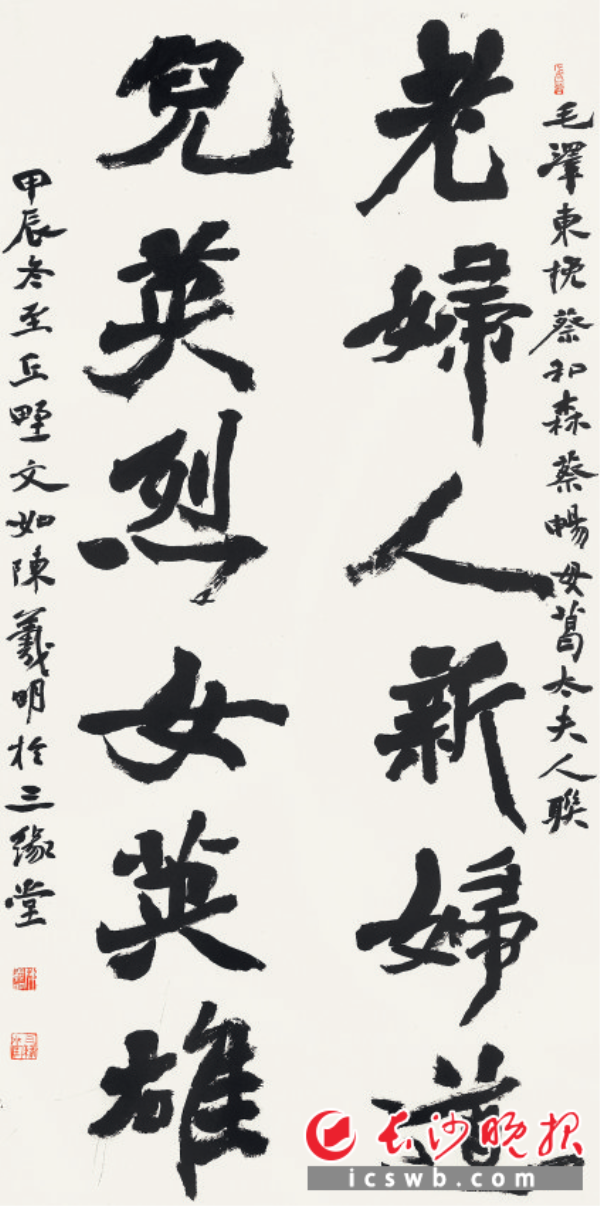 毛澤東挽蔡和森蔡暢母葛太夫人聯
老婦人新婦道
兒英烈女英雄
甲辰冬至丘野文如陳羲明於三緣堂
长沙晚报
icswb.com